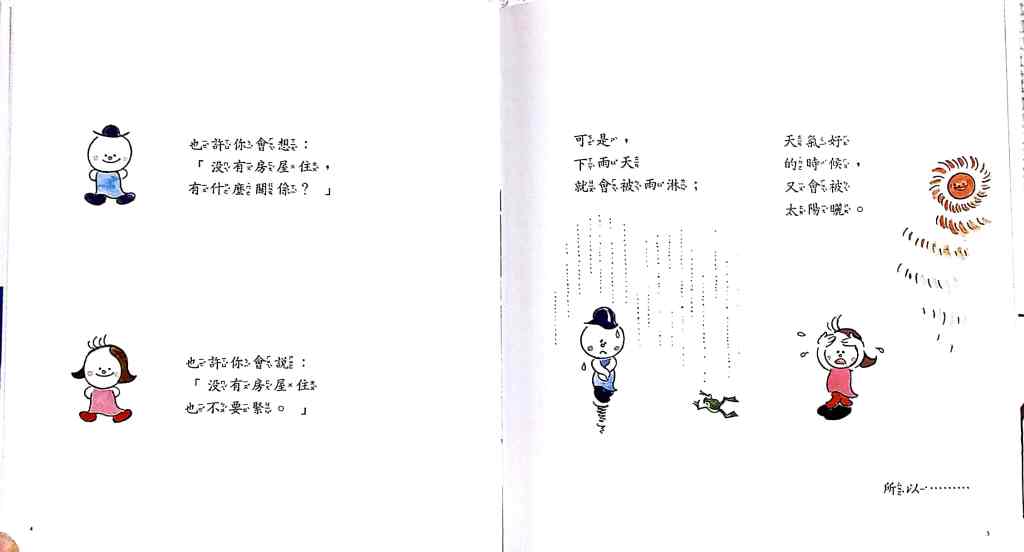 也許你會想：
「沒有房屋住，
有什麼關係？」
也許你會說：
「沒有房屋住
也不要緊。」
4
可是，
下雨天
就會被雨淋；
天氣好
的時候，
又會被
太陽曬。
所以………
5